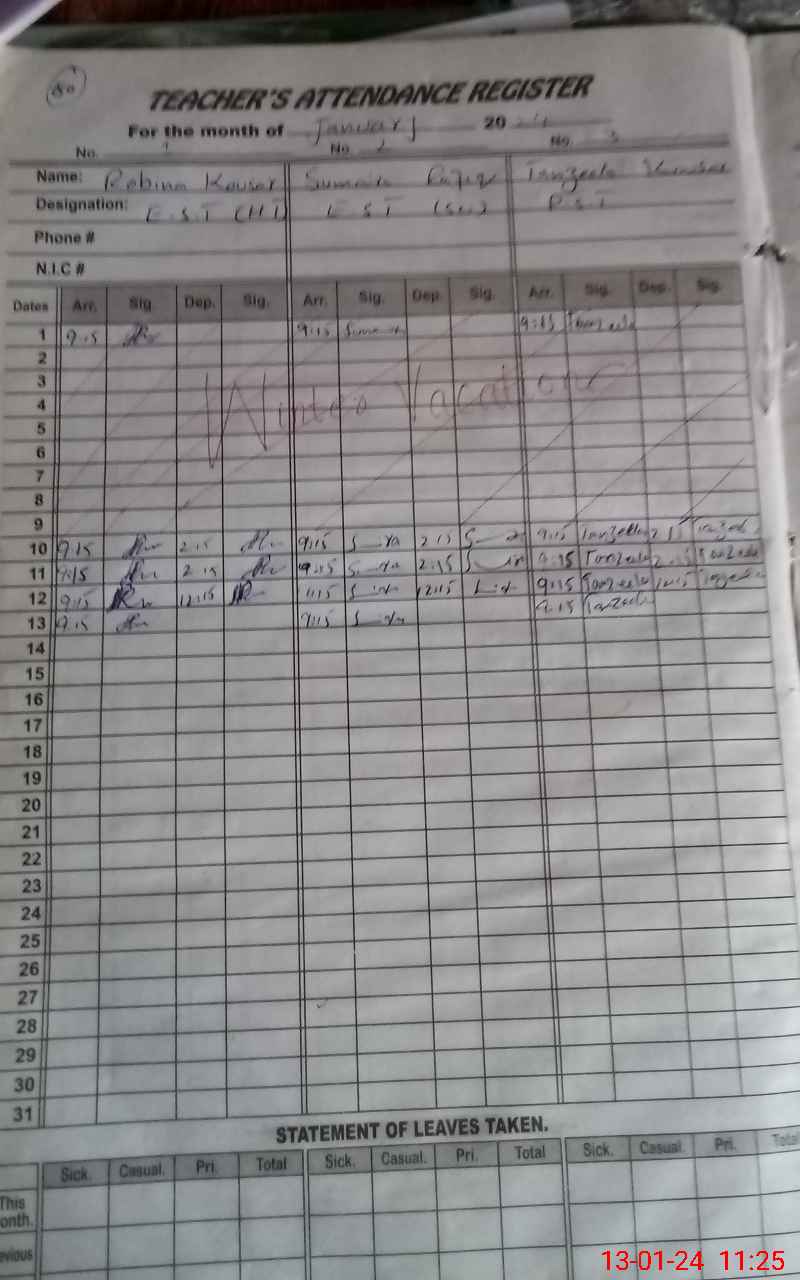 80
TEACHER'S ATTENDANCE REGISTER
For the month of January 2024
No. 1 No. 2 No. 3
Name: Robina Kousar Sumaira Tanzeela
Designation: E.S.T (HT) E S T P.S.T
Phone #
N.I.C #
Dates Arr. Sig. Dep. Sig. Arr. Sig. Dep. Sig. Arr. Sig. Dep. Sig.
1 9:15 9:15 9:15 Tanzeela
2
3
Winter Vacation
4
5
6
7
8
9
10 9:15 2:15 9:15 2:15 9:15 Tanzeela
11 9:15 2:15 9:15 2:15 9:15 Tanzeela Tanzeela
12 9:15 12:15 12:15 9:15 Tanzeela 12:15 Tanzeela
13 9:15 9:15 9:15 Tanzeela
14
15
16
17
18
19
20
21
22
23
24
25
26
27
28
29
30
31
STATEMENT OF LEAVES TAKEN.
Sick. Casual. Pri. Total Sick. Casual. Pri. Total Sick. Casual. Pri. Total
This
onth.
evious
13-01-24 11:25